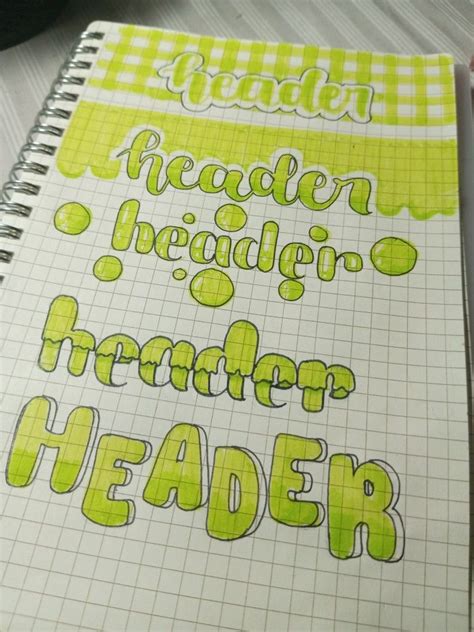 header
header
header
header
HEADER